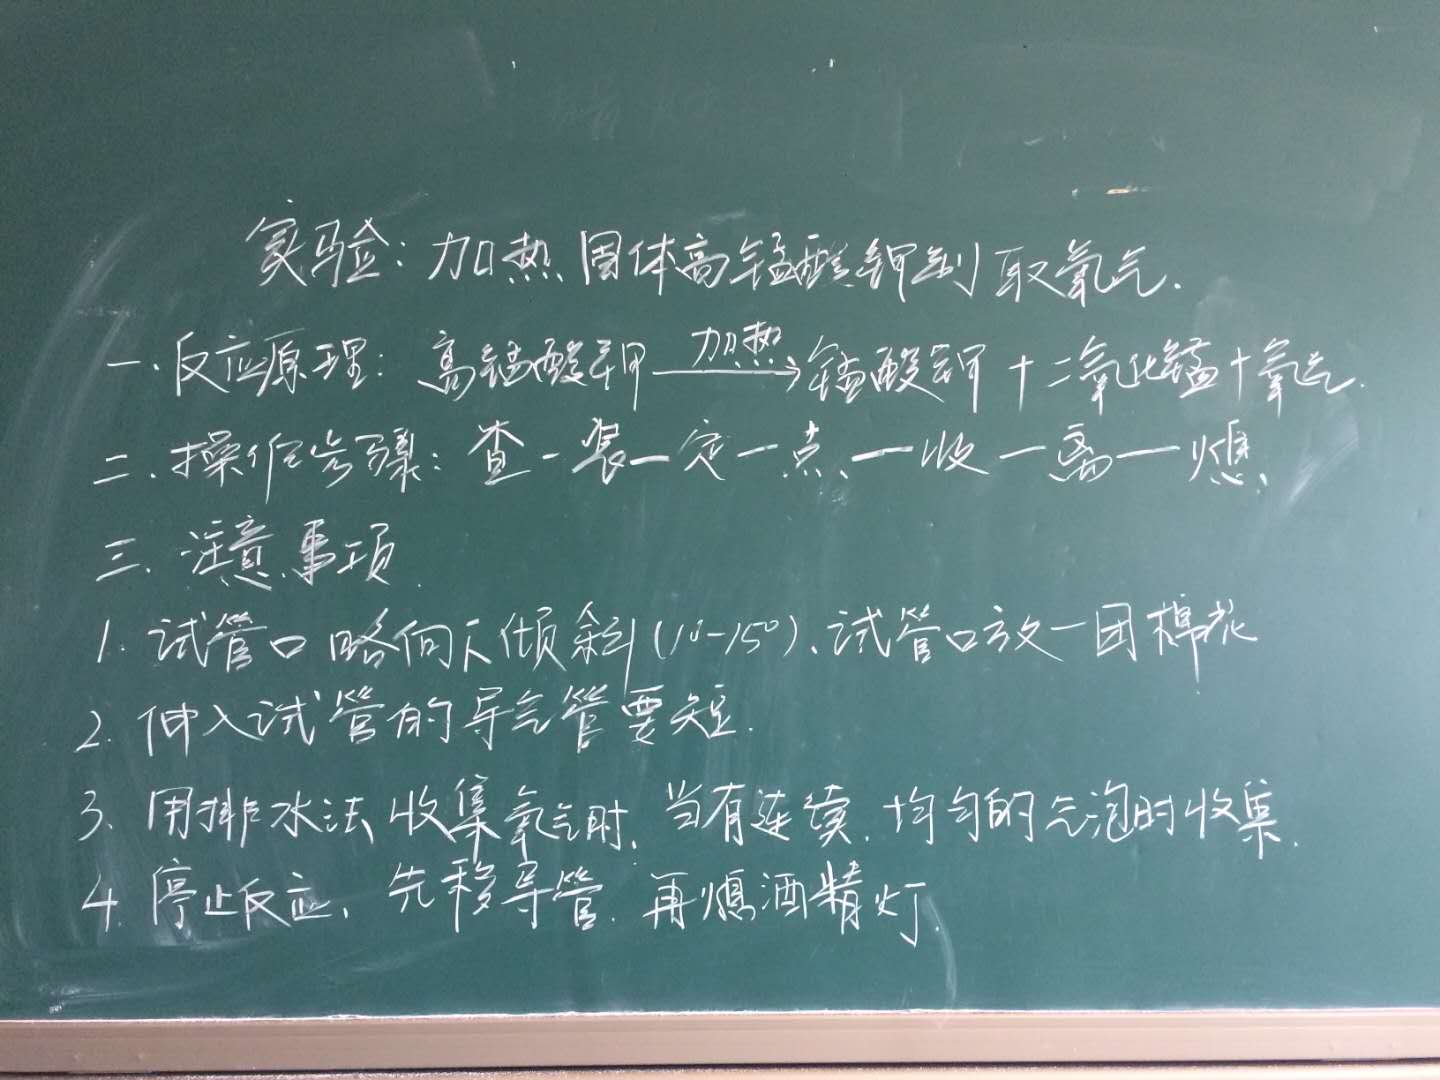 实验：加热固体高锰酸钾制取氧气.
一.反应原理：高锰酸钾 加热→ 锰酸钾+二氧化锰+氧气.
二.操作步骤：查-装-定-点-收-离-熄.
三.注意事项.
1.试管口略向下倾斜(10-15°).试管口放一团棉花
2.伸入试管的导气管要短.
3.用排水法收集氧气时,当有连续.均匀的气泡时收集.
4.停止反应,先移导管.再熄酒精灯.